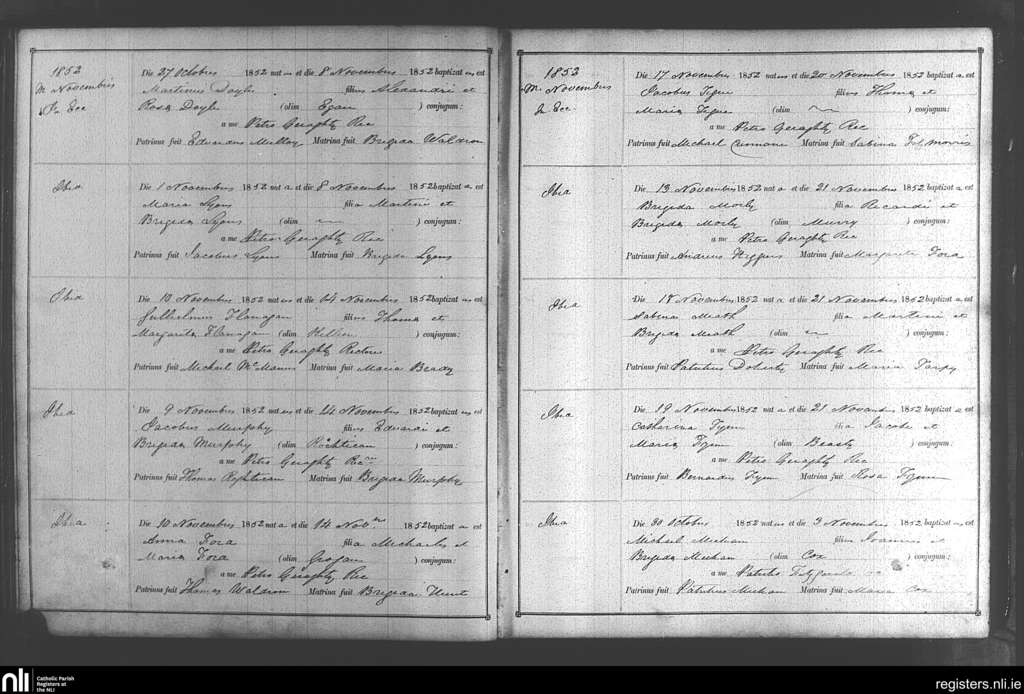 1852
M Novembris
In Ecc
Die 27 Octobris 1852 nat us et die 8 Novembris 1852 baptizat us est
Martinus Doyle filius Alexandri et
Rosa Doyle (olim Egan ) conjugum:
a me Petro Geraghty Rec
Patrinus fuit Edwardus Mulloy Matrina fuit Brigida Waldron
Ibid
Die 1 Novembris 1852 nat a et die 8 Novembris 1852 baptizat a est
Maria Lyons filia Martini et
Brigida Lyons (olim — ) conjugum:
a me Petro Geraghty Rec
Patrinus fuit Jacobus Lyons Matrina fuit Brigida Lyons
Ibid
Die 10 Novembris 1852 nat us et die 14 Novembris 1852 baptizat us est
Gulielmus Flanagan filius Thoma et
Margarita Flanagan (olim ) conjugum:
a me Petro Geraghty Rectore
Patrinus fuit Michael McManus Matrina fuit Maria
Ibid
Die 9 Novembris 1852 nat us et die 14 Novembris 1852 baptizat us est
Jacobus Murphy filius Edvardi et
Brigida Murphy (olim ) conjugum:
a me Petro Geraghty Rec
Patrinus fuit Thomas Matrina fuit Brigida Murphy
Ibid
Die 10 Novembris 1852 nat a et die 14 1852 baptizat a est
Anna Fora filia Michaelis et
Maria Fora (olim Grogan ) conjugum:
a me Petro Geraghty Rec
Patrinus fuit Thomas Waldron Matrina fuit Brigida Hunt
1852
M. Novembris
In Ecc.
Die 17 Novembris 1852 nat us et die 20 Novembris 1852 baptizat us est
Jacobus filius Thoma et
Maria (olim — ) conjugum:
a me Petro Geraghty Rec
Patrinus fuit Michael Matrina fuit Sabina Fitzmorris
Ibid
Die 13 Novembris 1852 nat a et die 21 Novembris 1852 baptizat a est
Brigida Morly filia Ricardi et
Brigida Morly (olim Murry ) conjugum:
a me Petro Geraghty Rec
Patrinus fuit Andreas Higgins Matrina fuit Margarita Fora
Ibid
Die 18 Novembris 1852 nat a et die 21 Novembris 1852 baptizat a est
Sabina Meath filia Martini et
Brigida Meath (olim — ) conjugum:
a me Petro Geraghty Rec
Patrinus fuit Patritius Doherty Matrina fuit Maria Tarpy
Ibid
Die 19 Novembris 1852 nat a et die 21 1852 baptizat a est
Catharina filia Jacobi et
Maria (olim Beasty ) conjugum:
a me Petro Geraghty Rec
Patrinus fuit Bernardus Matrina fuit Rosa
Ibid
Die 30 Octobris 1852 nat us et die 3 Novembris 1852 baptizat us est
Michael Meehan filius Joannis et
Brigida Meehan (olim Cox ) conjugum:
a me
Patrinus fuit Patritius Meehan Matrina fuit Maria Cox
nli
Catholic Parish
Registers at
the NLI
registers.nli.ie